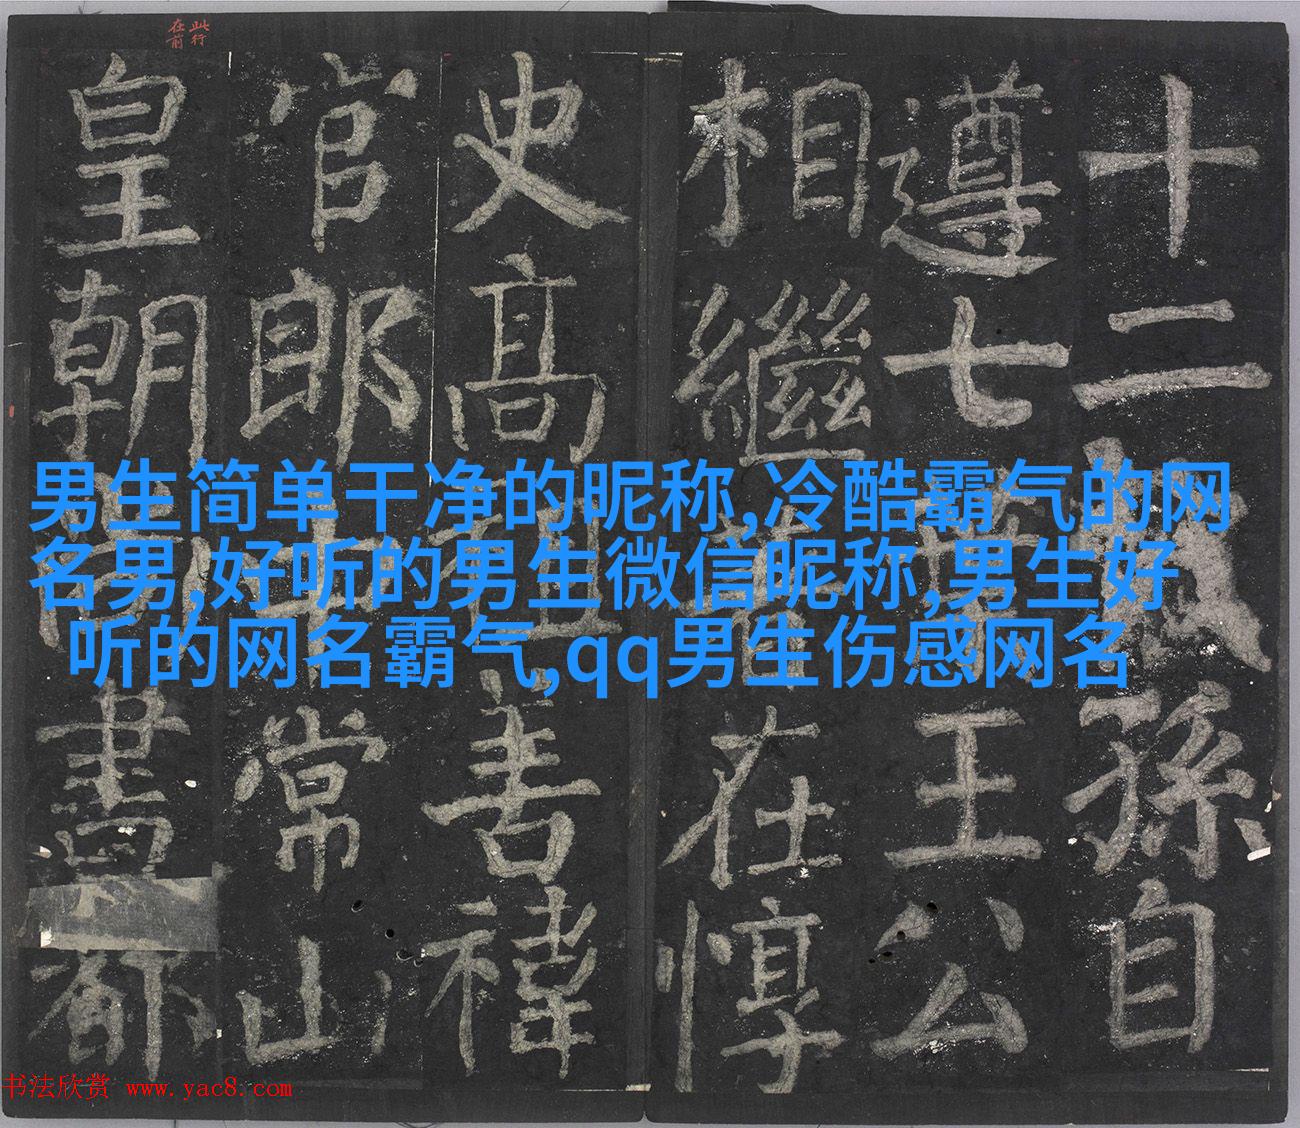 此行
在前
十二孫自
遵七王公
相繼在惇
史高祖善禕
官郎常山
皇朝尚書都
男生简单干净的昵称,冷酷霸气的网
名男,好听的男生微信昵称,男生好
听的网名霸气,qq男生伤感网名
书法欣赏 www.yac8.com